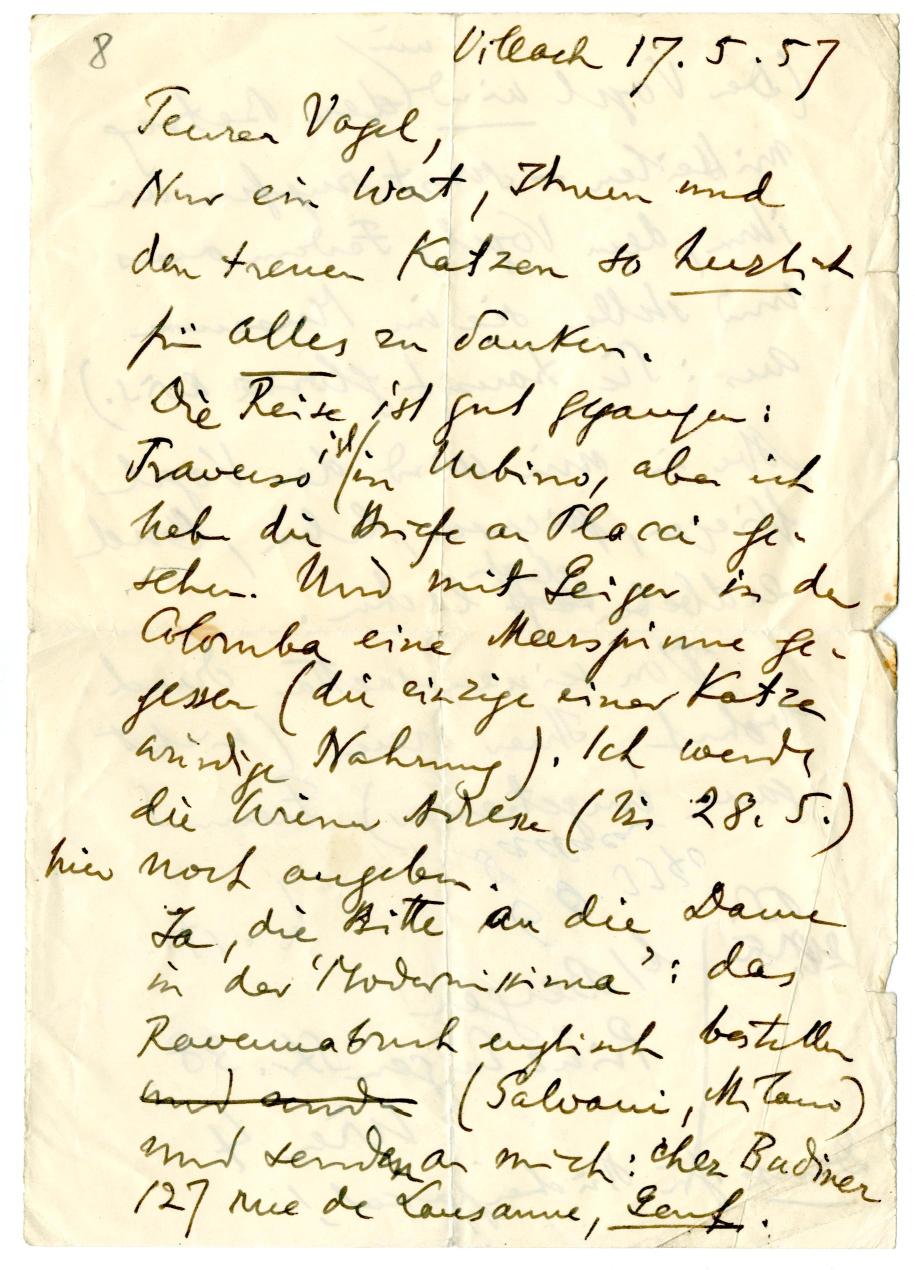 8
Villach 17.5.57
Teurer Vogel,
Nur ein Wort, Ihnen und
den treuen Katzen so herzlich
für alles zu danken.
Die Reise ist gut gegangen:
Traverso ist in Urbino, aber ich
habe die Briefe an Placci ge-
sehen. Und mit Geiger in der
Colomba eine Meerspinne ge-
gessen (die einzige einer Katze
würdige Nahrung). Ich werde
die Wiener Adresse (bis 28.5.)
hier noch angeben.
Ja, die Bitte an die Dame
in der 'Modernissima': das
Ravennabuch englisch bestellen
und senden (Salvani, Milano)
und senden an mich: chez Badiner
127 rue de Lausanne, Genf.